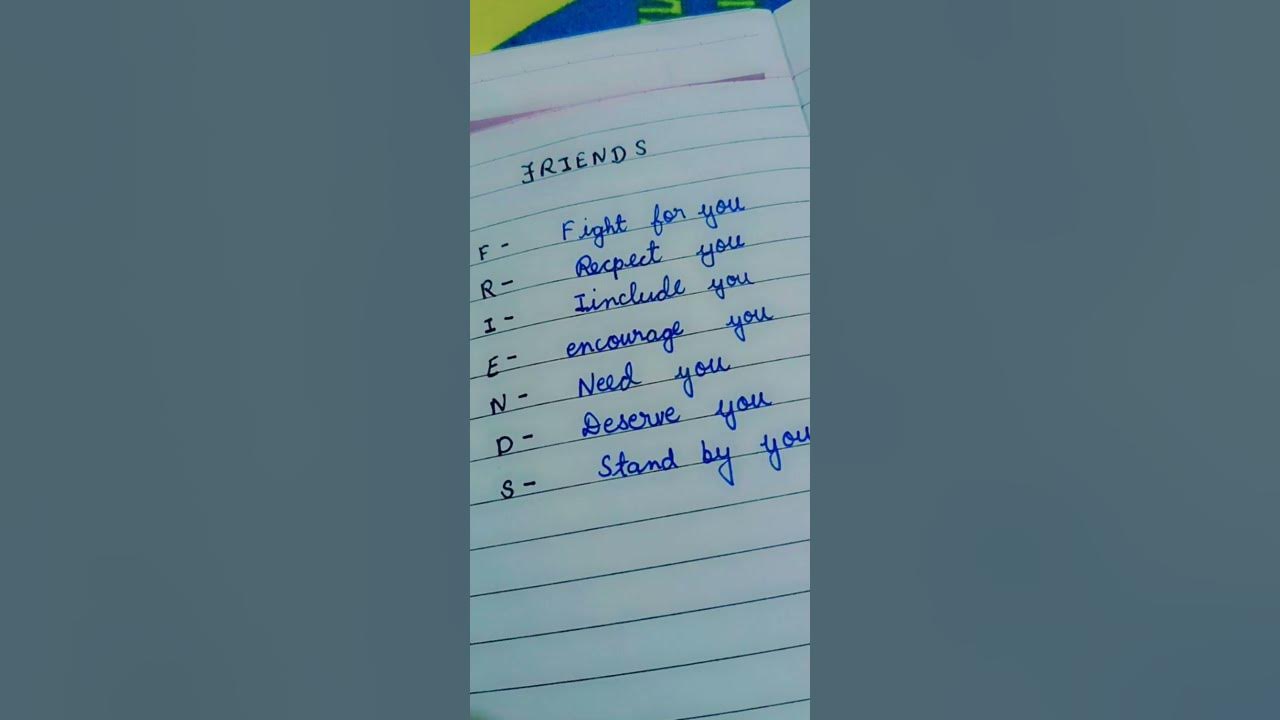 FRIENDS
F - Fight for you
R - Recpect you
I - Iinclude you
E - encourage you
N - Need you
D - Deserve you
S - Stand by you